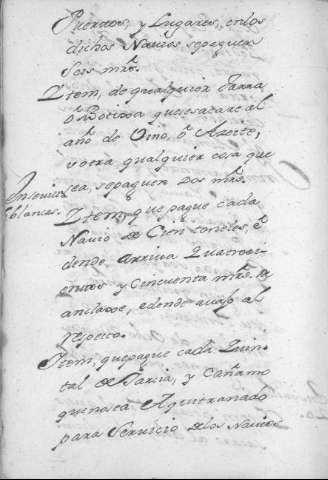 Puertos, y Lugares, en los
dichos Navios se paguen
seis mrs.
Item, de qualquier Jarra
o Botixa que sacare al
año de Vino, o Azeite,
u otra qualquier cosa que
sea, se paguen dos mrs.
blancas. Item que pague cada
Navio de Cien toneles, e
dende arriva Quatrocientos
y Cincuenta mrs. de
anclaxe, e dende avajo al
respecto.
Item, que pague cada Quin-
tal de Jarcia, y Cañamo
que no sea Alquitranado
para Servicio de los Navios